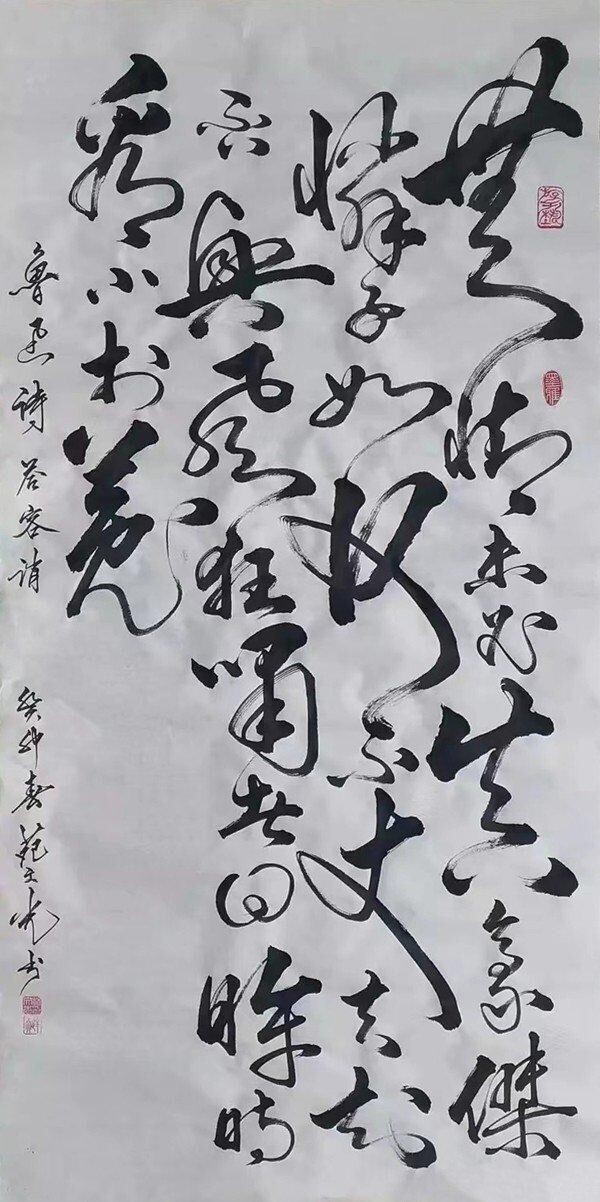 無情未必真豪傑
憐子如何不丈夫知
否興風狂嘯者回眸時
看小於菟
魯迅詩答客誚 癸卯春